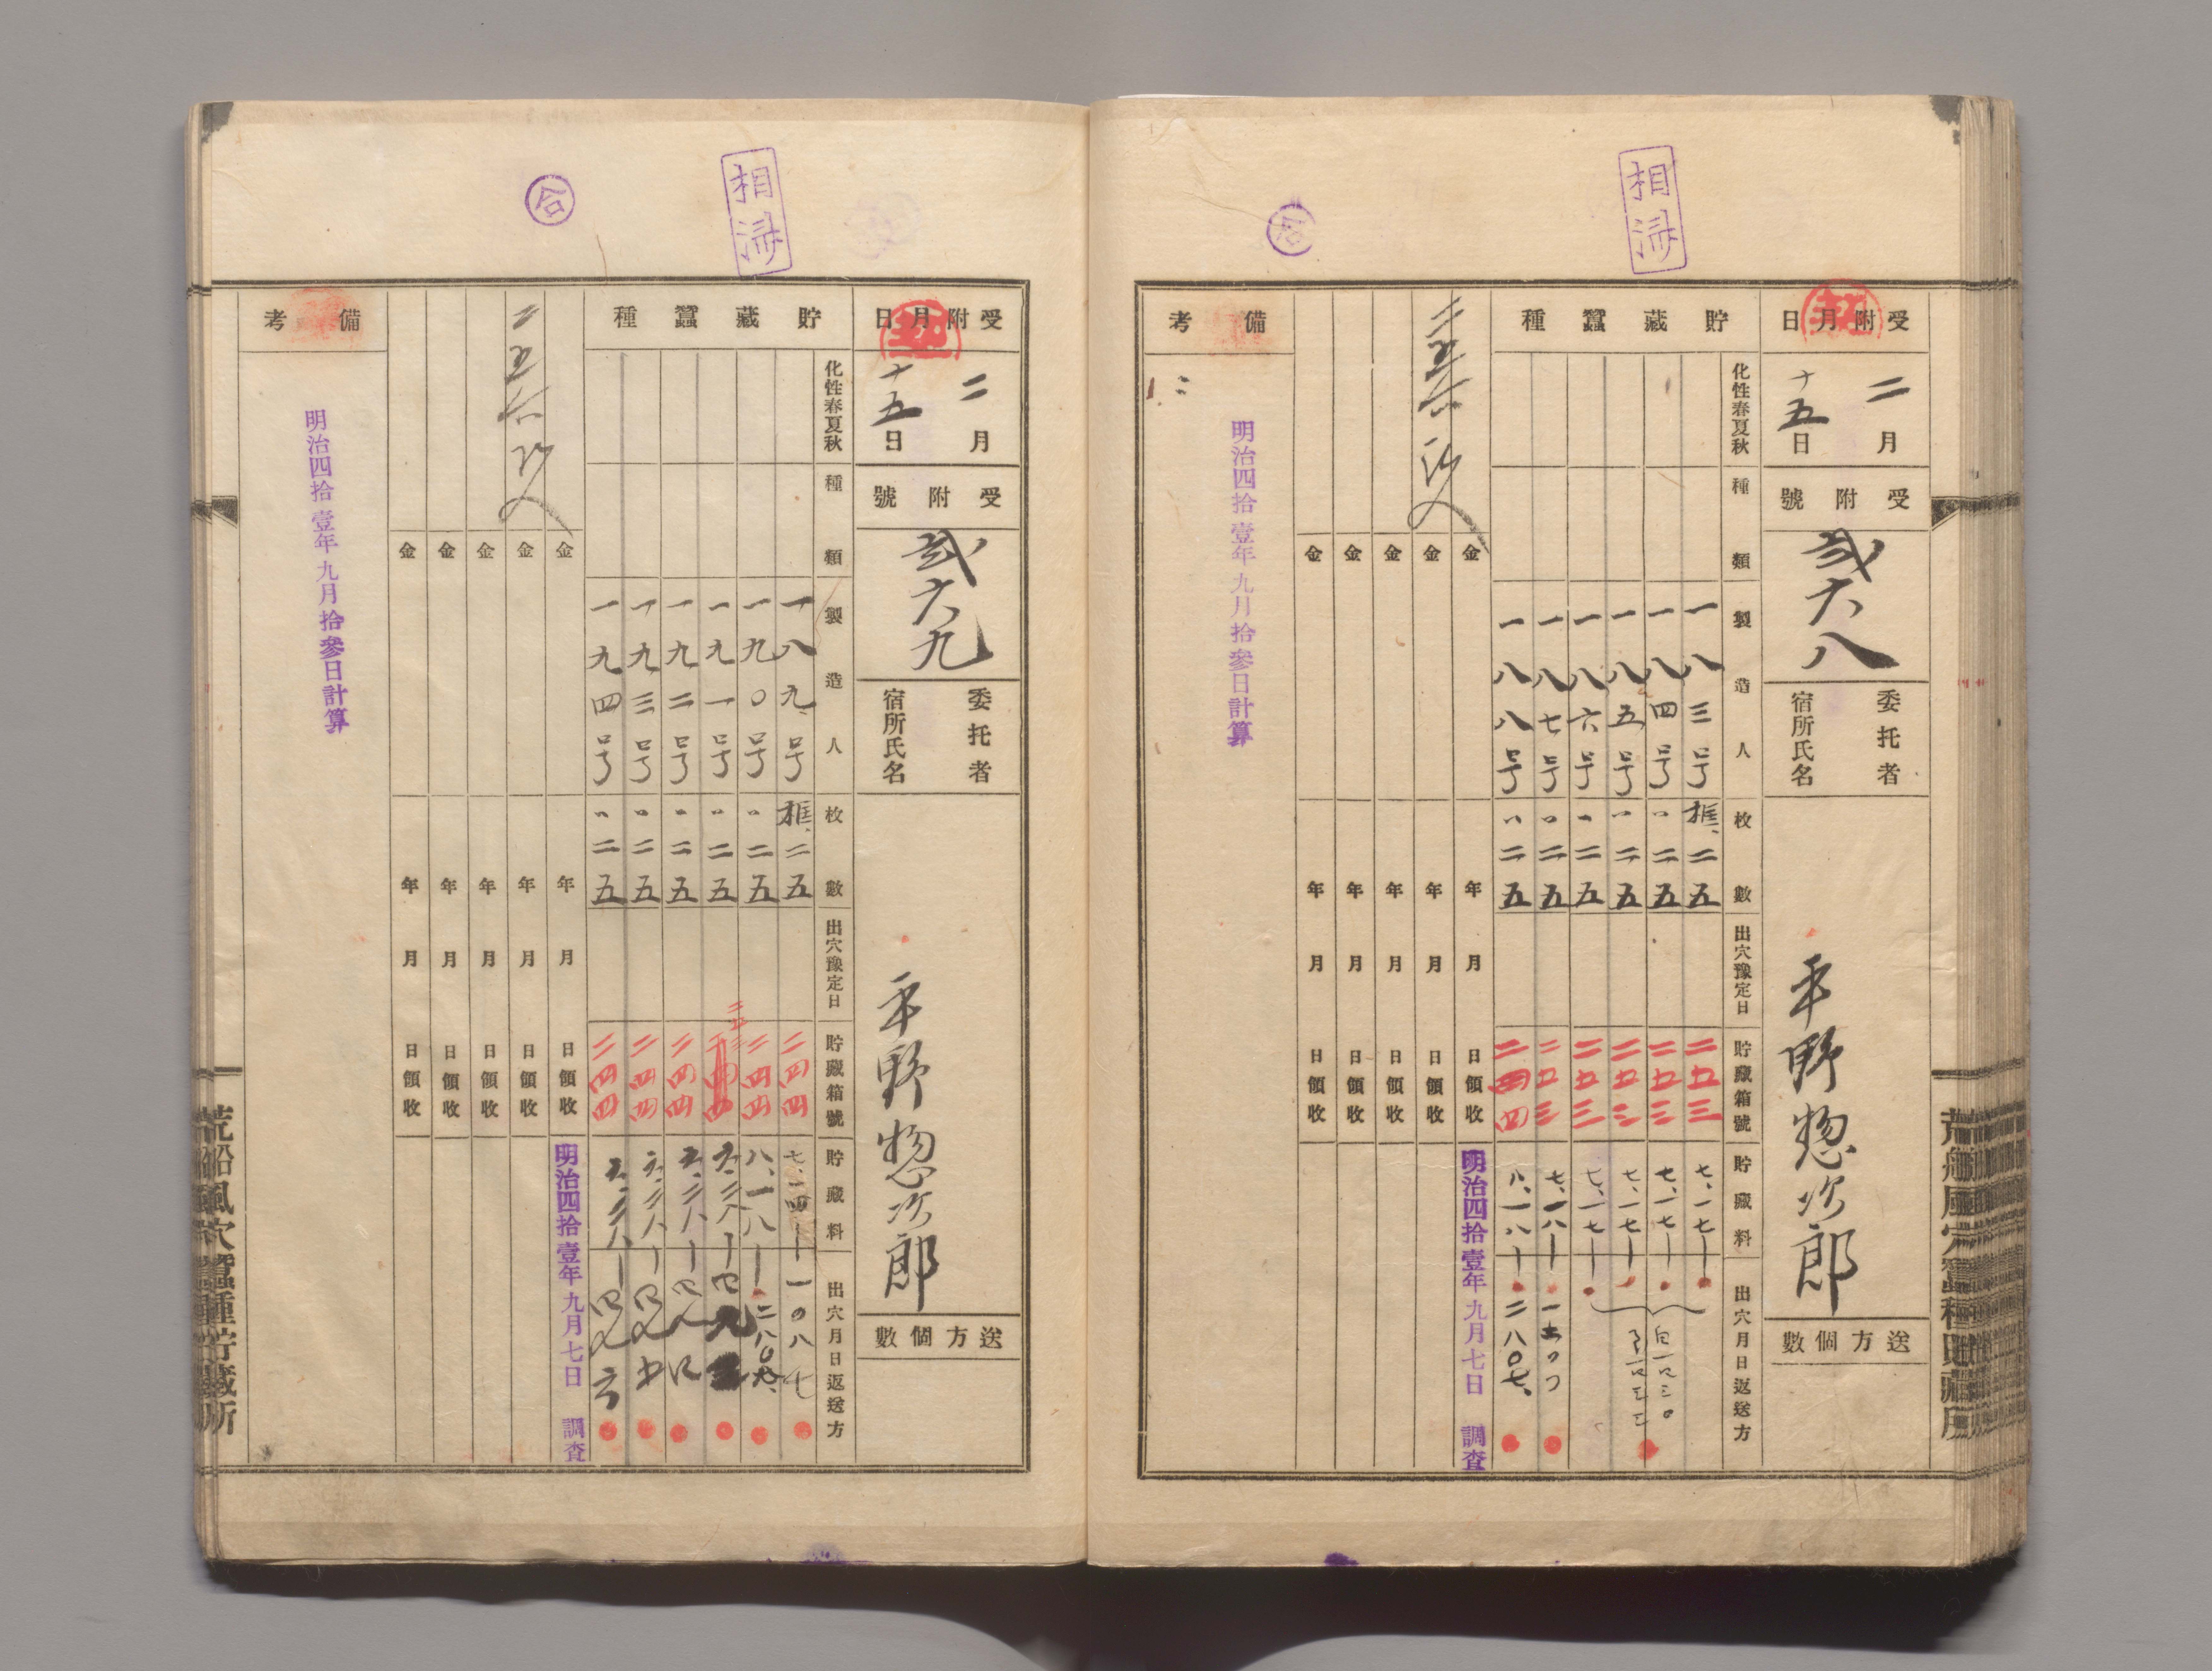 相済
受附月日
二月
十五日
受附號
弐六八
委托者
宿所氏名
平野惣次郎
送方個數
貯藏蠶種
化性春夏秋
種類
製造人
枚數
出穴豫定日
貯藏箱號
貯藏料
出穴月日返送方
一八三号 框、二五 二五三 七、一七
一八四号 〃 二五 二五三 七、一七
一八五号 〃 二五 二五三 七、一七
一八六号 〃 二五 二五三 七、一七
一八七号 〃 二五 二五三 七、一八
一八八号 〃 二五 二四四 八、一八 二八〇七
金 年 月 日領收 明治四拾壹年九月七日 調査
金 年 月 日領收
金 年 月 日領收
金 年 月 日領收
金 年 月 日領收
備考
明治四拾壹年九月拾參日計算
荒船風穴蠶種貯藏所
相済
合
受附月日
二月
十五日
受附號
弐六九
委托者
宿所氏名
平野惣次郎
送方個數
貯藏蠶種
化性春夏秋
種類
製造人
枚數
出穴豫定日
貯藏箱號
貯藏料
出穴月日返送方
一八九号 框、二五 二四四 七、一四 一〇八七
一九〇号 〃 二五 二四四 八、一八
一九一号 〃 二五 五、二八
一九二号 〃 二五 二四四 五、二八
一九三号 〃 二五 二四四 五、二八
一九四号 〃 二五 二四四 五、二八
金 年 月 日領收 明治四拾壹年九月七日 調査
金 年 月 日領收
金 年 月 日領收
金 年 月 日領收
金 年 月 日領收
備考
明治四拾壹年九月拾參日計算
荒船風穴蠶種貯藏所